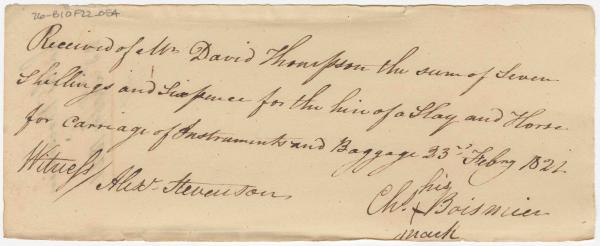 76-B10F22-05A
Received of Mr David Thompson the sum of Seven
Shillings and Sixpence for the hire of a Slay and Horse
for carriage of Instruments and Baggage 23d Febry 1821
Witness / Alexr Stevenson
his
Chs X Boismier
mark